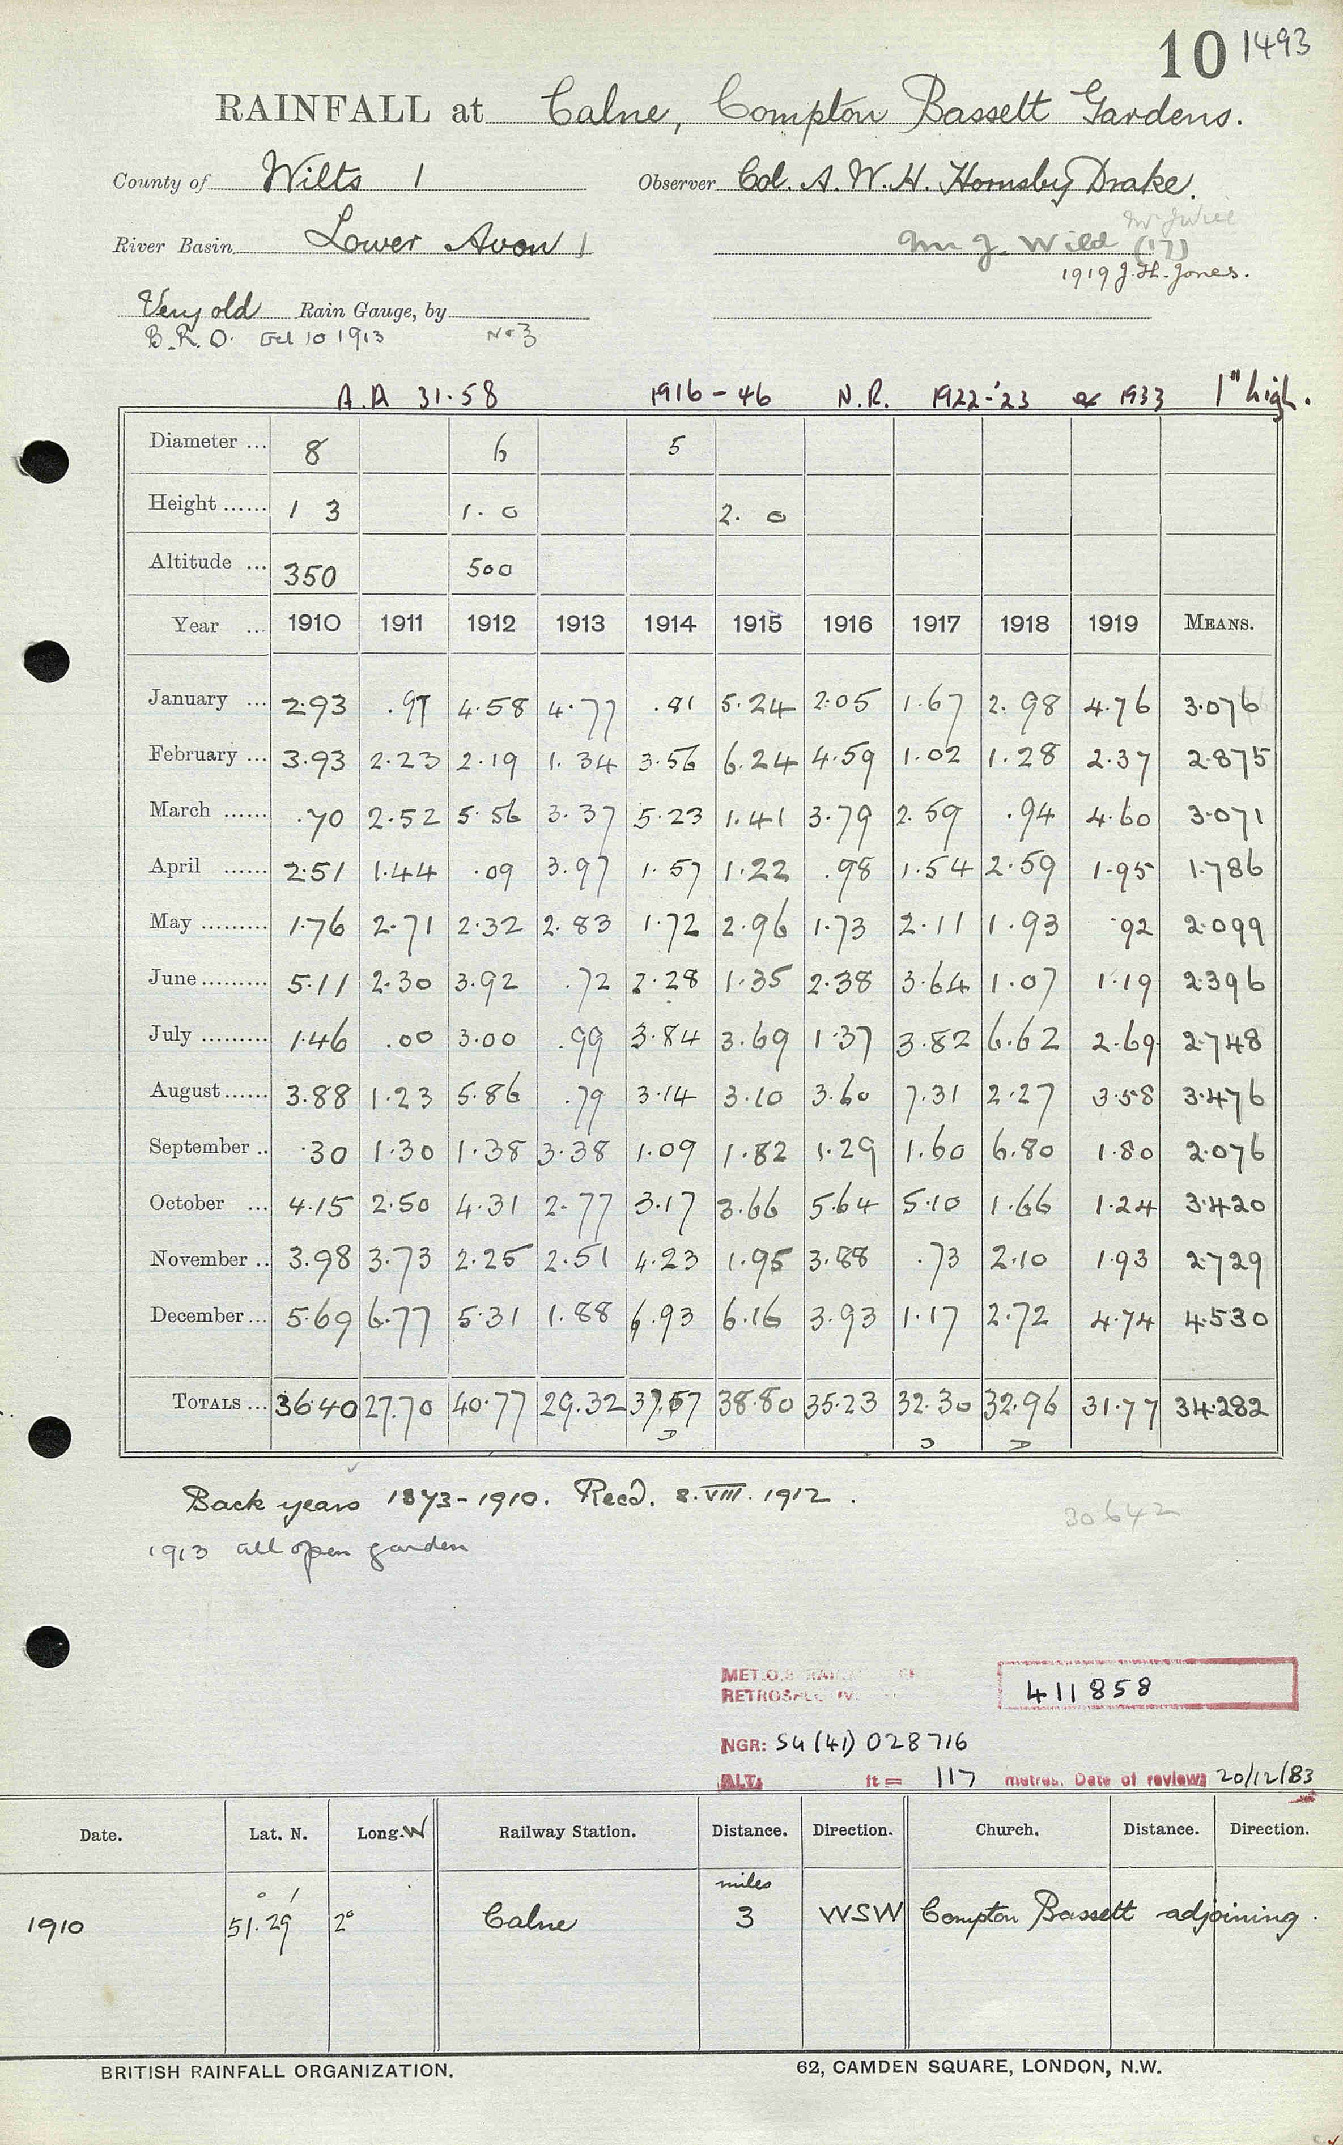 10 1493
RAINFALL at Calne, Compton Bassett Gardens.
County of Wilts 1 Observer Col. A. W. H. Hornsby Drake.
River Basin Lower Avon 1 Mr J. Wild (17)
1919 J. H. Jones.
Very old Rain Gauge, by
B.R.O. Oct 10 1913 No 3
A.A 31.58 1916-46 N.R. 1922-'23 & 1933 1" high.
Diameter ... 8 6 5
Height ...... 1 3 1. 0 2. 0
Altitude ... 350 500
Year ... 1910 1911 1912 1913 1914 1915 1916 1917 1918 1919 MEANS.
January ... 2.93 .97 4.58 4.77 .81 5.24 2.05 1.67 2.98 4.76 3.076
February ... 3.93 2.23 2.19 1.34 3.56 6.24 4.59 1.02 1.28 2.37 2.875
March ...... .70 2.52 5.56 3.37 5.23 1.41 3.79 2.59 .94 4.60 3.071
April ...... 2.51 1.44 .09 3.97 1.57 1.22 .98 1.54 2.59 1.95 1.786
May ......... 1.76 2.71 2.32 2.83 1.72 2.96 1.73 2.11 1.93 .92 2.099
June ......... 5.11 2.30 3.92 .72 2.28 1.35 2.38 3.64 1.07 1.19 2.396
July ......... 1.46 .00 3.00 .99 3.84 3.69 1.37 3.82 6.62 2.69 2.748
August ...... 3.88 1.23 5.86 .79 3.14 3.10 3.60 7.31 2.27 3.58 3.476
September .. .30 1.30 1.38 3.38 1.09 1.82 1.29 1.60 6.80 1.80 2.076
October ... 4.15 2.50 4.31 2.77 3.17 3.66 5.64 5.10 1.66 1.24 3.420
November .. 3.98 3.73 2.25 2.51 4.23 1.95 3.88 .73 2.10 1.93 2.729
December ... 5.69 6.77 5.31 1.88 6.93 6.16 3.93 1.17 2.72 4.74 4.530
TOTALS ... 36.40 27.70 40.77 29.32 37.57 38.80 35.23 32.30 32.96 31.77 34.282
Back years 1873-1910. Recd. 8.VIII.1912.
30642
1913 all open garden
MET.O.8
411858
NGR: SU (41) 028716
ALT: ft = 117 metres. Date of review: 20/12/83
Date. Lat. N. Long. W Railway Station. Distance. Direction. Church. Distance. Direction.
miles
1910 51° 29' 2° Calne 3 WSW Compton Bassett adjoining.
BRITISH RAINFALL ORGANIZATION. 62, CAMDEN SQUARE, LONDON, N.W.